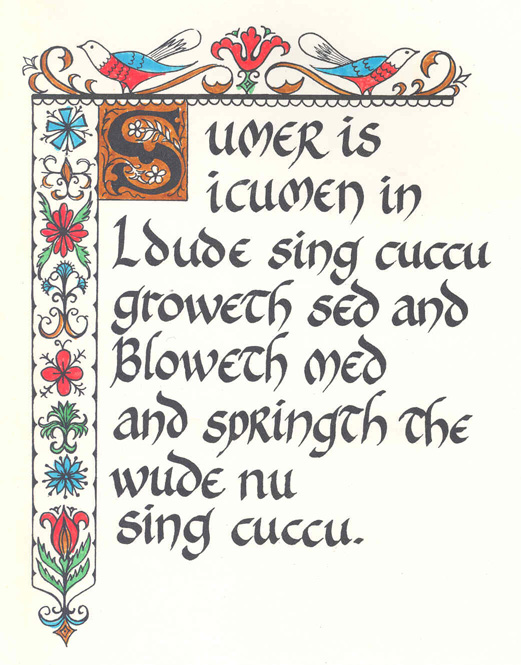 SUMER is
icumen in
Ldude sing cuccu
groweth sed and
Bloweth med
and springth the
wude nu
sing cuccu.